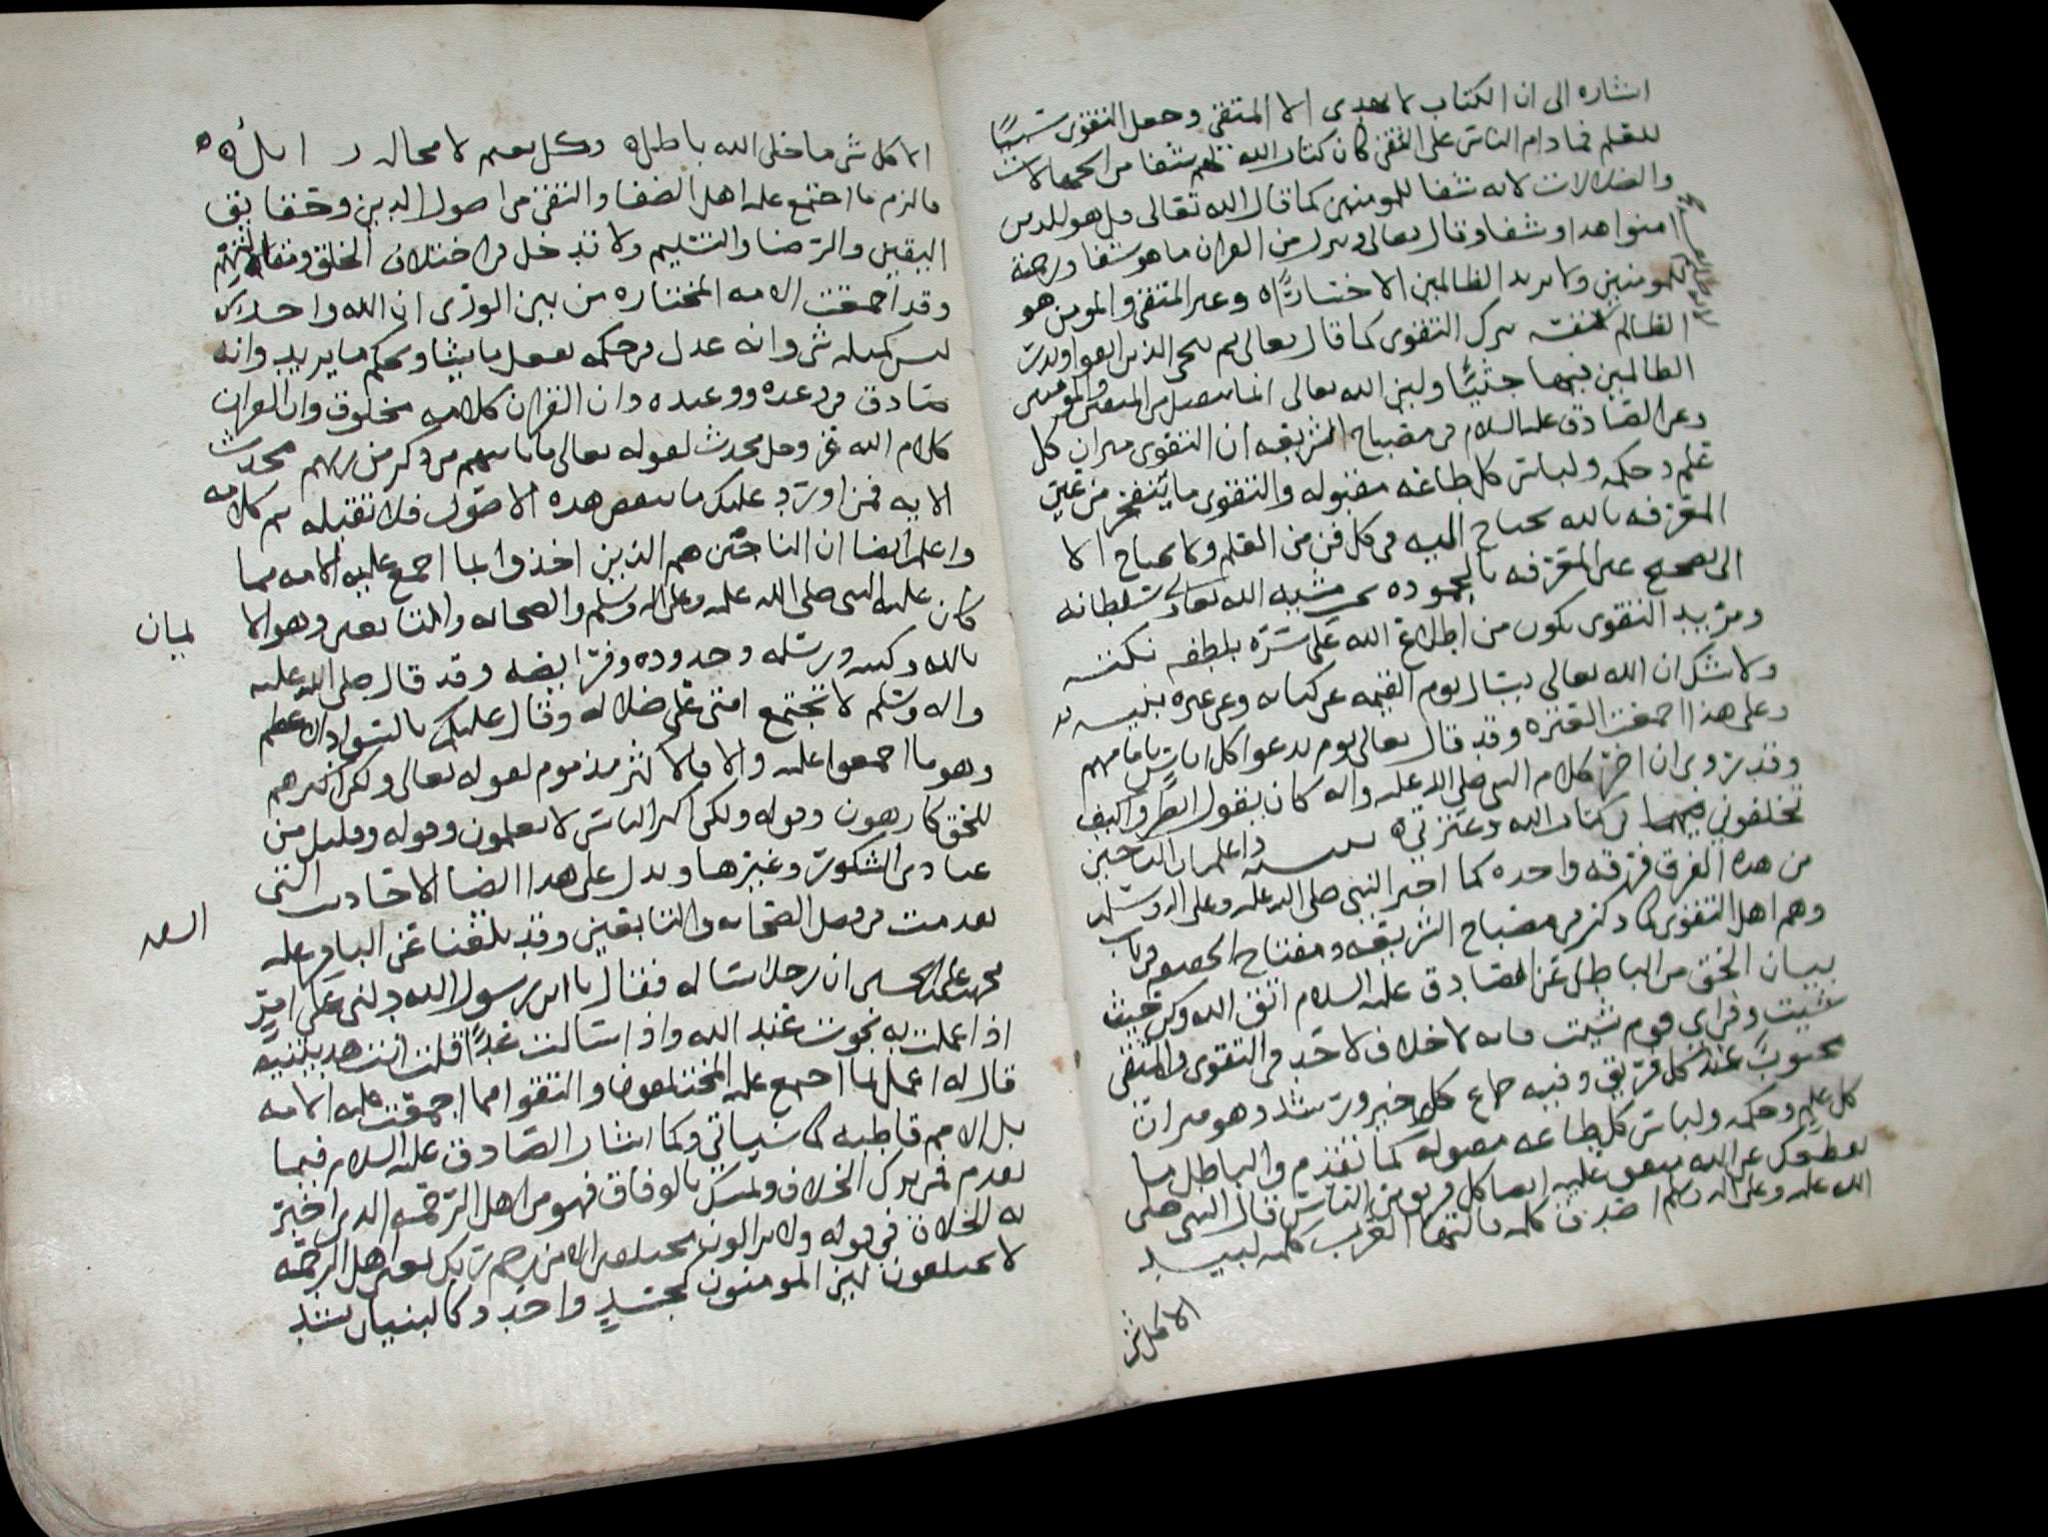 اشاره الى ان الكتاب لا يهدى الا المتقى وجعل التقوى سببًا
للعلم فما دام الناس على التقى كان كتاب الله لهم شفا من الجهالات
والضلالات لانه شفا للمومنين كما قال الله تعالى قل هو للدين
امنوا هدا وشفا وقال تعالى وننزل من القران ما هو شفا ورحمة
للمومنين ولا يزيد الظالمين الا خسارًا وغير المتقى والمومن هو
الظالم لنفسه بترك التقوى كما قال تعالى ثم ننجى الذين اتقوا ونذر
الظالمين فيها جثيًا وليز الله تعالى انما يتقبل من المتقين والمومنين
وعن الصادق عليه السلام في مصباح الشريعه ان التقوى ميزان كل
علم وحكمه ولباس كل طاعه مقبوله والتقوى ما يتفجر من عين
المعرفه بالله يحتاج اليه في كل فن من العلم ولا يحتاج الا
الى تصحيح عين المعرفه بالجموده تحت مشيه الله تعالى وسلطانه
ومزيد التقوى يكون من اطلاع الله على سره بلطفه
ولا شك ان الله تعالى يسال يوم القيمه عن كتابه وعن عتره نبيه
وعلى هذا اجمعت العتره وقد قال تعالى يوم ندعوا كل اناس بامامهم
وقد روى ان اخر كلام النبى صلى الله عليه واله كان يقول انظروا كيف
تخلفوني فيهما في كتاب الله وعترتي واعلم ان الناجين
من هذه الفرق فرقه واحده كما اخبر النبى صلى الله عليه وعلى اله وسلم
وهم اهل التقوى كما ذكر في مصباح الشريعه ومفتاح الحقيقه في باب
بيان الحق من الباطل عن الصادق عليه السلام اتق الله وكن حيث
شيت وفي اي قوم شيت فانه لا خلاف لاحد في التقوى والمتقى
محبوب عند كل فريق وفيه جماع كل خير ورشد وهو ميزان
كل علم وحكمه ولباس كل طاعه مقبوله كما تقدم والباطل ما
يقطعك عن الله متفق عليه ايضا كل فريق من الناس قال النبى صلى
الله عليه وعلى اله وسلم اصدق كلمه قالتها العرب كلمه لبيد
الا كل شى
الا كل شى ما خلى الله باطل وكل نعيم لا محاله زايل
فالزم ما اجتمع عليه اهل الصفا والتقى من اصول الدين وحقايق
اليقين والرضا والتسليم ولا تدخل في اختلاف الخلق ومقالاتهم
وقد اجمعت الامه المختاره من بين الورى ان الله واحد
ليس كمثله شى وانه عدل في حكمه يفعل ما يشا ويحكم ما يريد وانه
صادق في وعده ووعيده وان القران كلامه مخلوق وان القران
كلام الله عز وجل محدث لقوله تعالى ما ياتيهم من ذكر من ربهم محدث
الايه فمن اورد عليك ما ينقض هذه الاصول فلا تقبله تم كلامه
واعلم ايضا ان الناجين هم الذين اخذوا بما اجمع عليه الامه مما
كان عليه النبى صلى الله عليه وعلى اله وسلم والصحابه والتابعين وهو الا
يمان
بالله وكتبه ورسله وحدوده وفرايضه وقد قال صلى الله عليه
واله وسلم لا تجتمع امتى على ضلاله وقال عليك بالسواد الاعظم
وهو ما اجمعوا عليه والا فالاكثر مذموم لقوله تعالى ولكن اكثرهم
للحق كارهون وقوله ولكن اكثر الناس لا يعلمون وقوله وقليل من
عبادى الشكور وغيرها ويدل على هذا ايضا الاحاديث التى
تقدمت في فضل الصحابه والسابقين وقد بلغنا عن الباقر عليه
السلم
محمد بن على بن الحسين ان رجلا ساله فقال يا ابن رسول الله دلنى على امر
اذا عملت به نجوت عند الله واذا سالت غدًا قلت انت هديتنيه
قال له اعمل بما اجمع عليه المختلفون والتقوا مما اجمعت عليه الامه
بل الامم قاطبه كما سياتي وكما اشار الصادق عليه السلام فيما
تقدم فمن ترك الخلاف وتمسك بالوفاق فهو من اهل الرحمه الذين اخبر
له الخلاف في قوله ولا يزالون مختلفين الا من رحم ربك يعنى اهل الرحمه
لا يختلفون ليز المومنون كجسد واحد وكالبنيان يشد